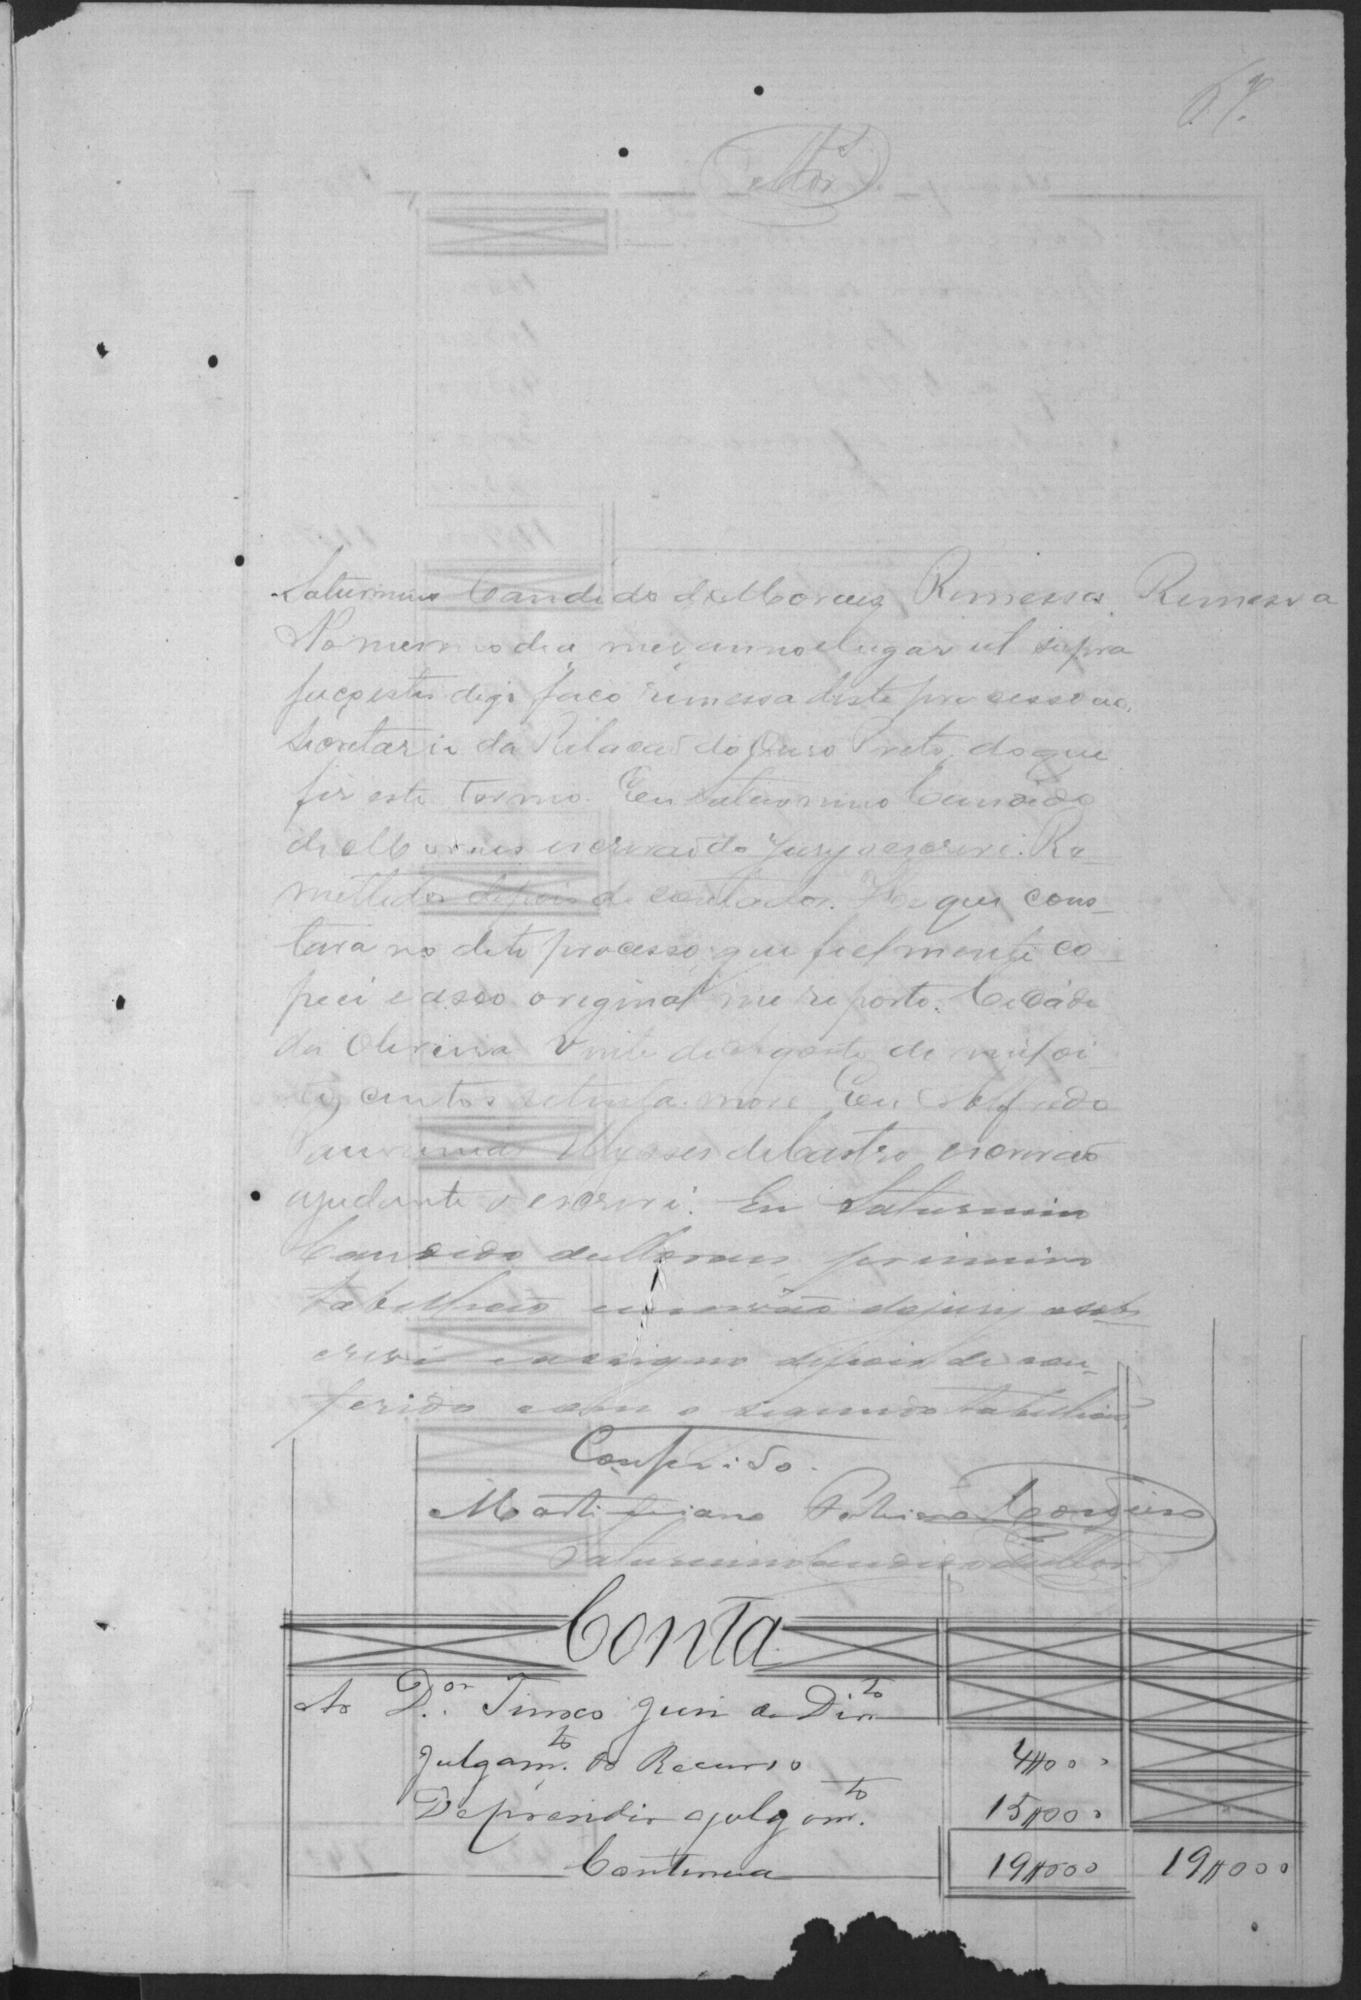 67.
Mor
Saturnino Candido de Moraes Remessa. Remessa
No mesmo dia, mez anno e lugar ut supra
faço remessa deste processo ao
Secretario da Relacão do Ouro Preto, do que
fiz este termo. Eu Saturnino Candido
de Moraes escrivão do Jury o escrevi. Re-
mettidos depois de contados. He que cons-
tava no dito processo, que fielmente co-
piei e a seo original me reporto. Cidade
da Oliveira vinte de Agosto de mil oi-
to centos e setenta e nove Eu Alfredo
Ulysses de Castro escrivão
ajudante o escrevi. Eu Saturnino
Candido de Moraes primeiro
tabellião e escrivão do jury o sobs-
crevi e assigno depois de con-
ferido com o segundo tabellião
Conferido.
Martiniano Cordeiro
Saturnino Candido de Mor.
Conta
Ao D.or Juiz de Dir.to
Julgam.to do Recurso 4$000
De julgam.to 15$000
Continua 19$000 19$000